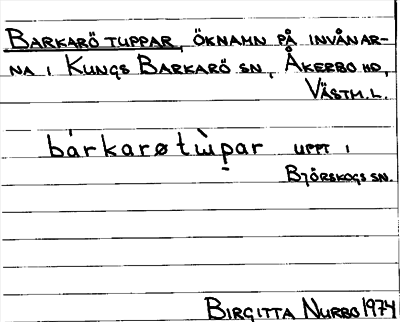 BARKARÖ TUPPAR, ÖKNAMN PÅ INVÅNAR-
NA I KUNGS BARKARÖ SN, ÅKERBO HD,
VÄSTM.L.
bárkarøtùp̱ar UPPT I
BJÖRSKOGS SN.
BIRGITTA NURBO 1974